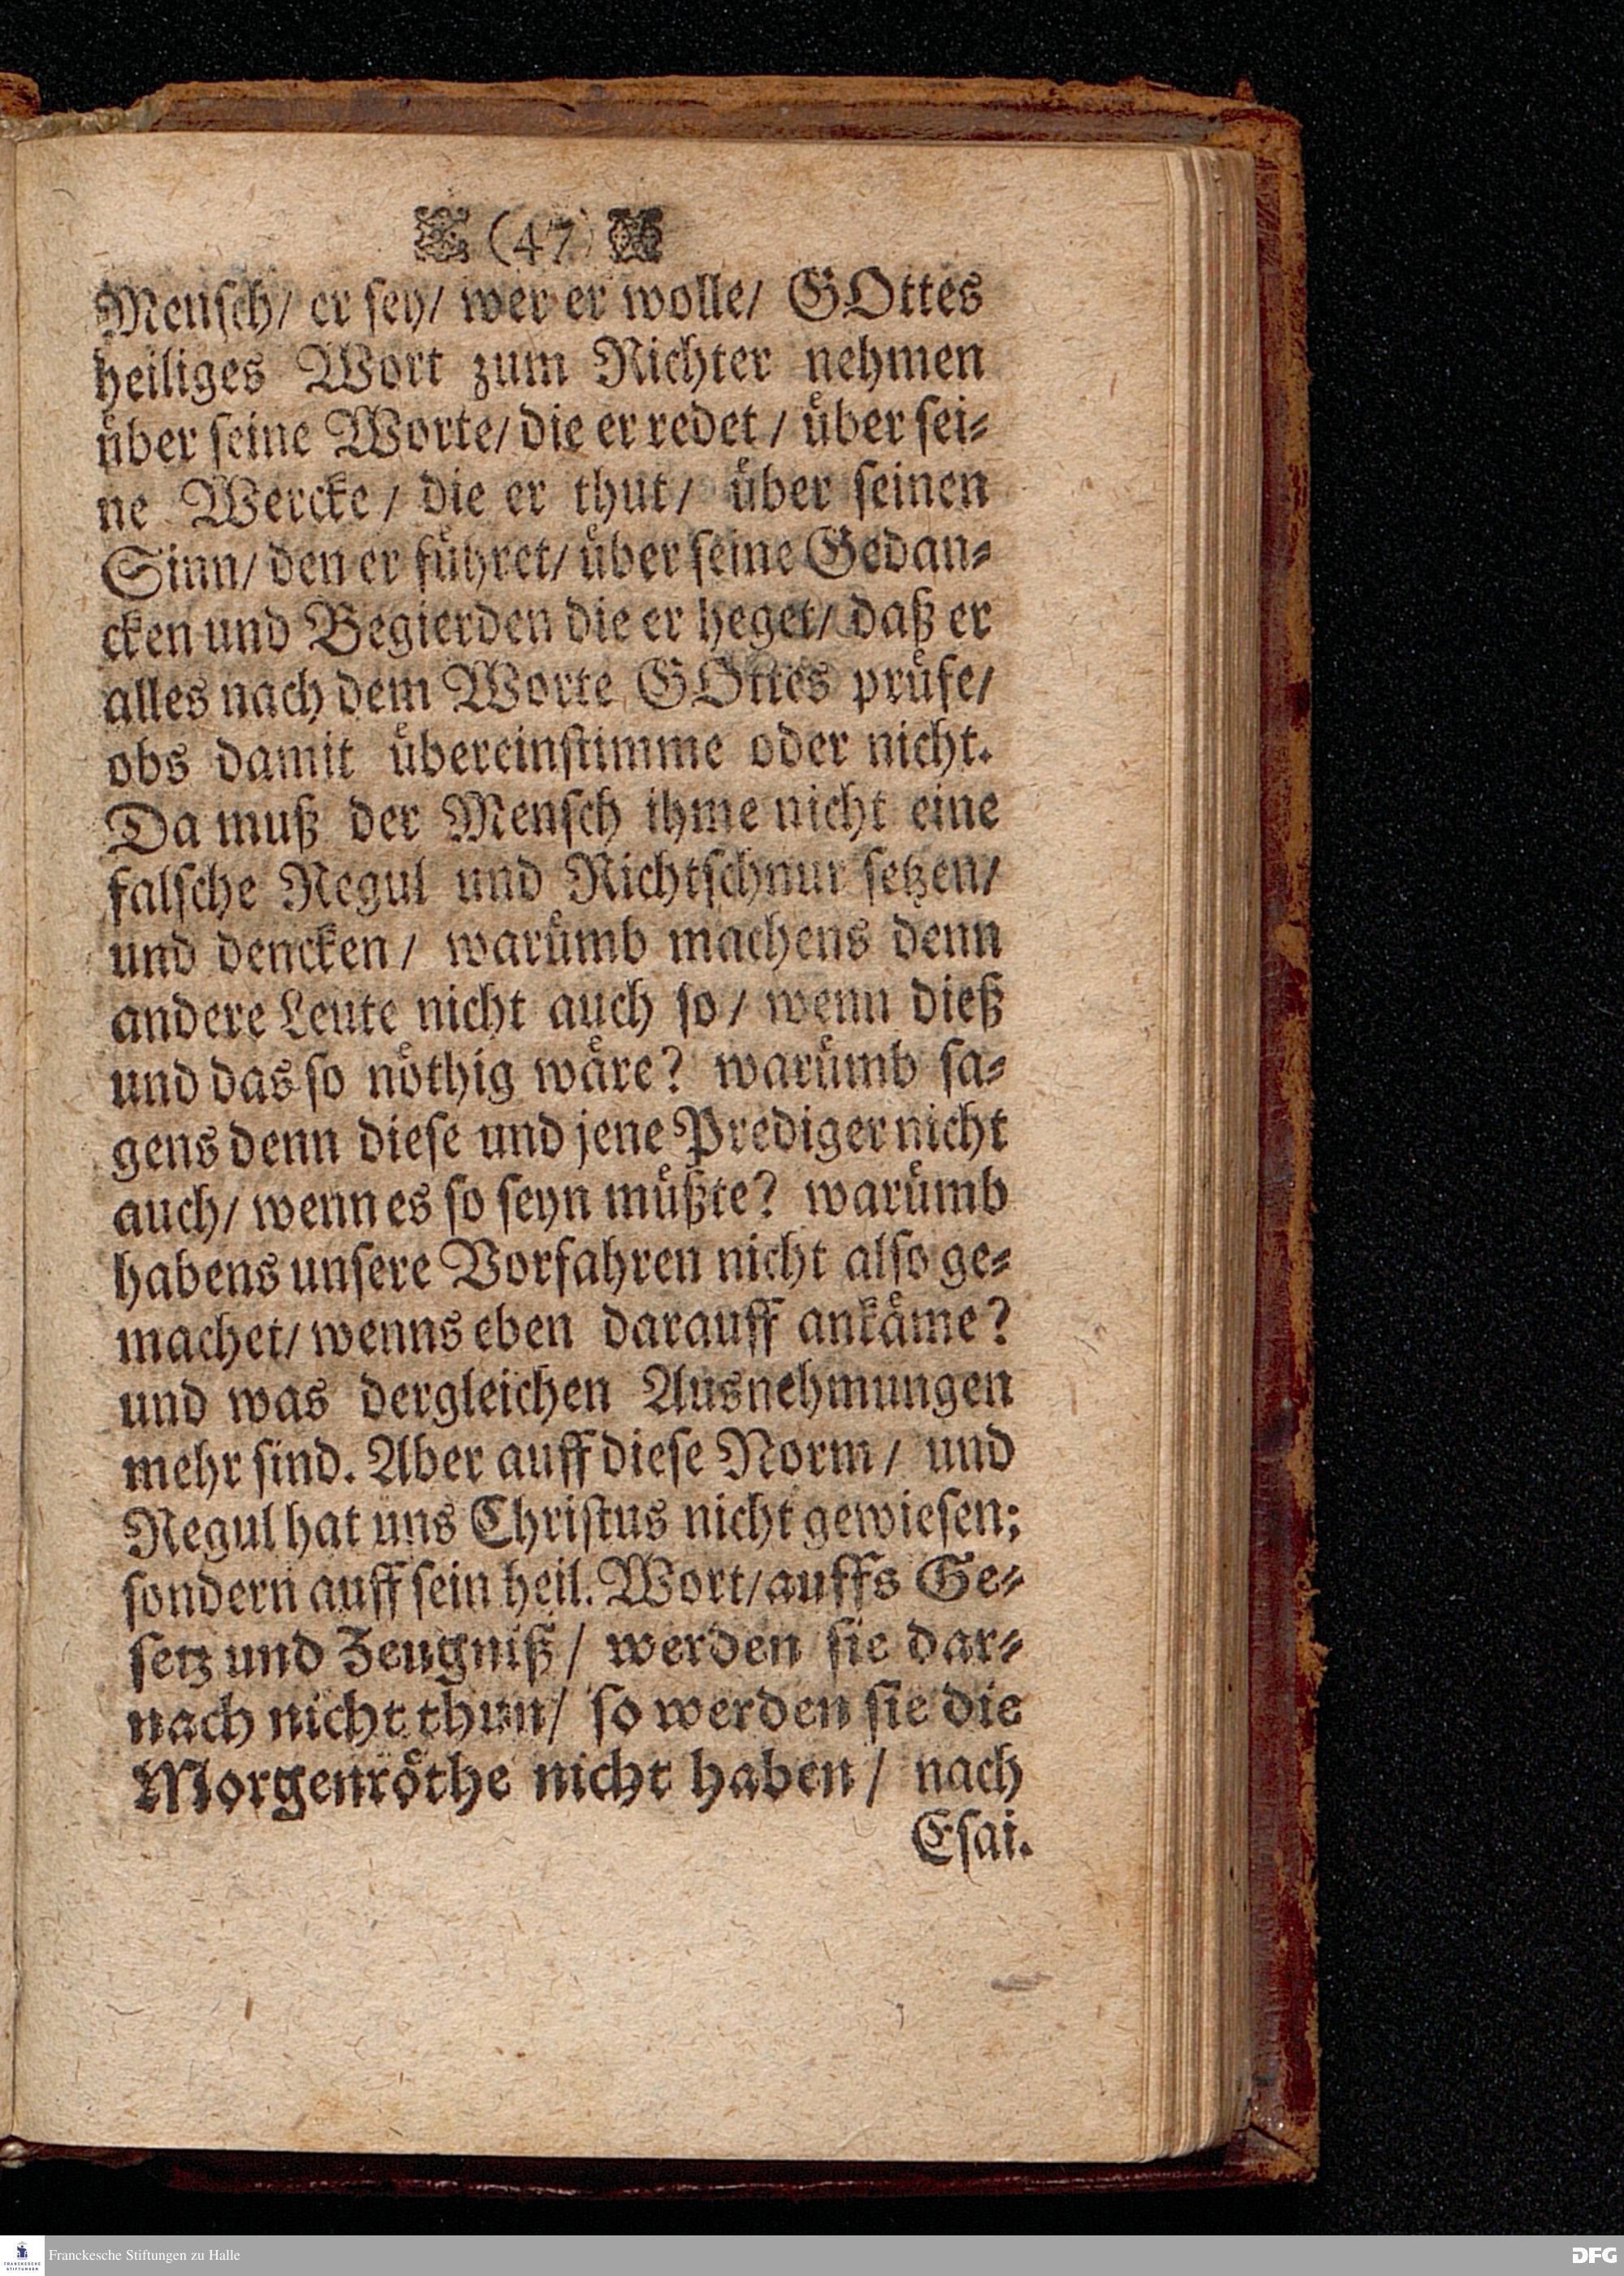 (47)
Mensch/ er sey/ wer er wolle/ GOttes
heiliges Wort zum Richter nehmen
uͤber seine Worte/ die er redet / uͤber sei-
ne Wercke / die er thut / uͤber seinen
Sinn/ den er fuͤhret/ uͤber seine Gedan-
cken und Begierden die er heget/ daß er
alles nach dem Worte GOttes pruͤfe/
obs damit uͤbereinstimme oder nicht.
Da muß der Mensch ihme nicht eine
falsche Regul und Richtschnur setzen/
und dencken / waruͤmb machens denn
andere Leute nicht auch so / wenn dieß
und das so noͤthig waͤre? waruͤmb sa-
gens denn diese und jene Prediger nicht
auch/ wenn es so seyn muͤßte? waruͤmb
habens unsere Vorfahren nicht also ge-
machet/ wenns eben darauff ankaͤme?
und was dergleichen Ausnehmungen
mehr sind. Aber auff diese Norm / und
Regul hat uns Christus nicht gewiesen;
sondern auff sein heil. Wort/ auffs Ge-
setz und Zeugniß / werden sie dar-
nach nicht thun/ so werden sie die
Morgenroͤthe nicht haben / nach
Esai.
Franckesche Stiftungen zu Halle
FRANCKESCHE STIFTUNGEN
DFG